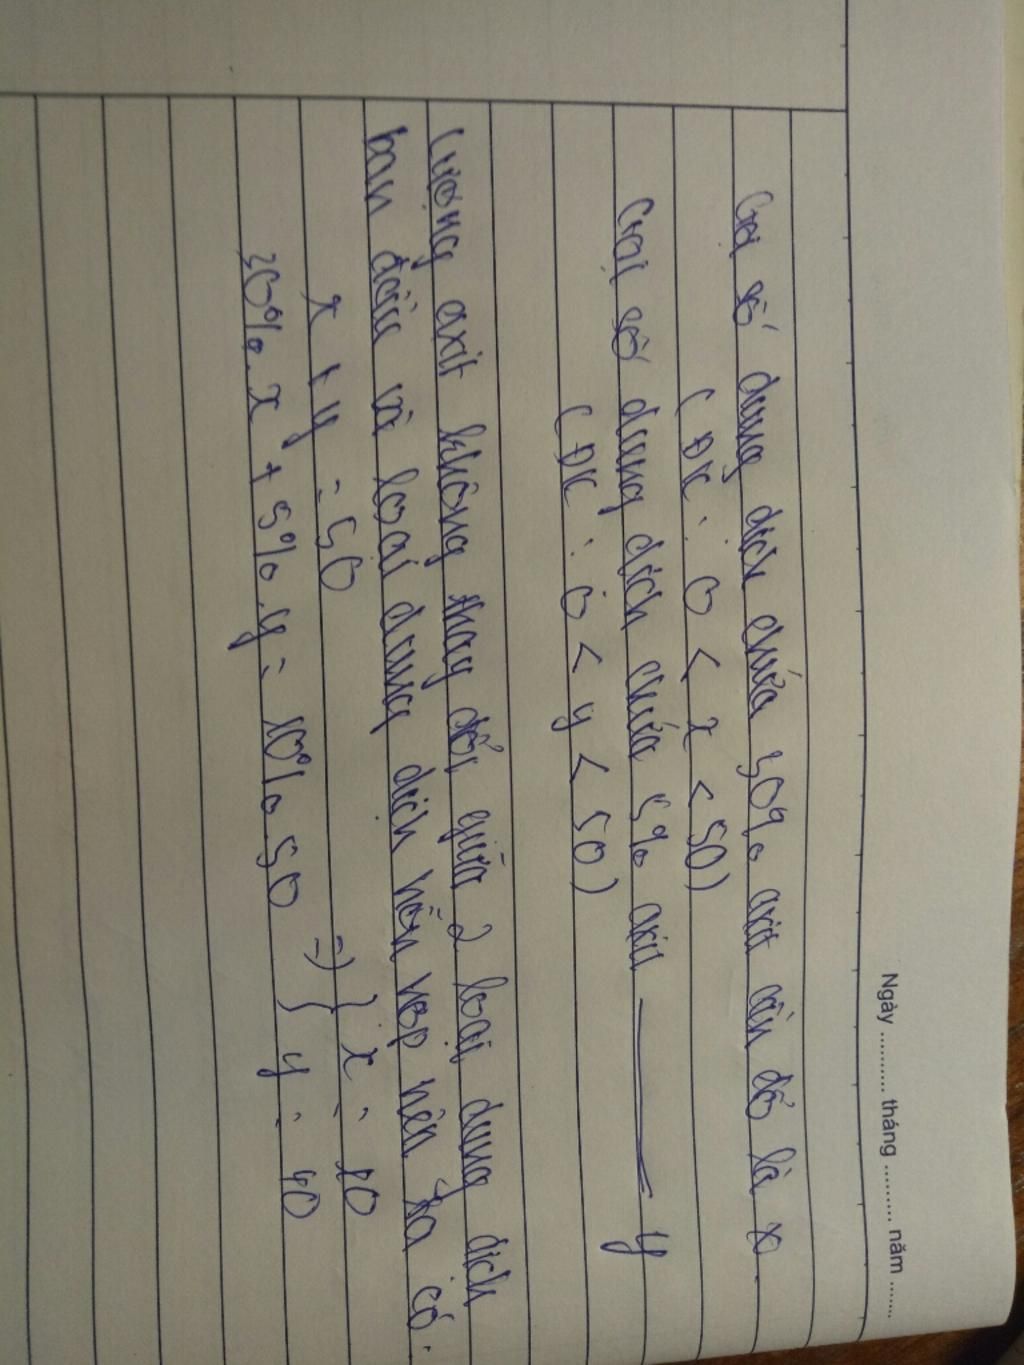 Ngày ........... tháng .......... năm .......
Gọi số dung dịch chứa 30% axit cần đổ là x.
( ĐK : 0 < x < 50)
Gọi số dung dịch chứa 5% axit ——— y
( ĐK : 0 < y < 50)
Lượng axit không thay đổi giữa 2 loại dung dịch
ban đầu và loại dung dịch hỗn hợp nên ta có.
x + y = 50
=) } x = 10
30%. x + 5%.y = 10%.50
} y = 40